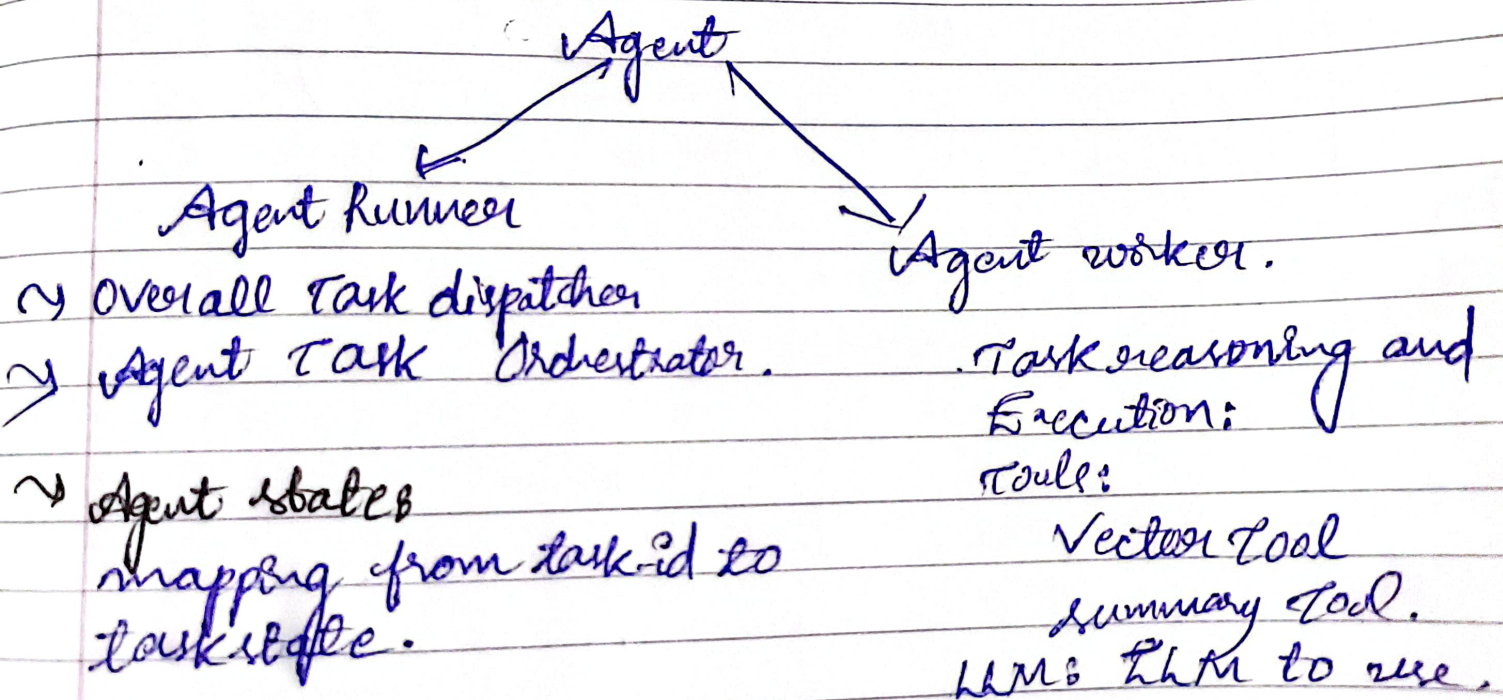 Agent
Agent Runner
Agent worker.
~> Overall Task dispatcher
~> Agent Task Orchestrator.
~> Agent states
mapping from task-id to
task state.
. Task reasoning and
Execution:
Tools:
Vector Tool
summary Tool.
LLM: LLM to use.